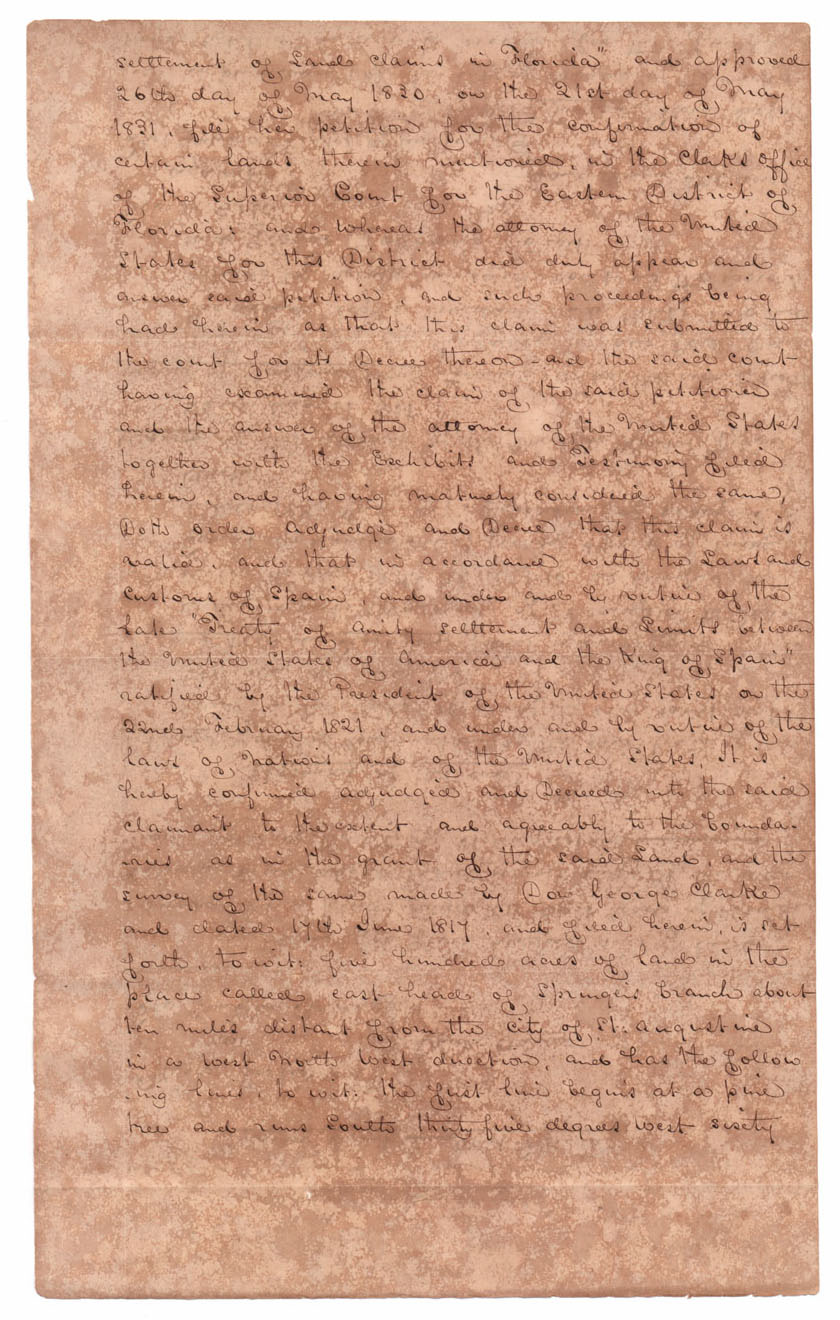 settlement of Land claims in Florida" and approved
26th day of May 1830, on the 21st day of May
1831, file her petition for the confirmation of
certain lands therein mentioned, in the Clerks office
of the Superior Court for the Eastern District of
Florida: and whereas the attorney of the United
States for this District did duly appear and
answer said petition, and such proceedings being
had herein as that this claim was submitted to
the court for its Decree thereon - and the said court
having examined the claim of the said petitioner
and the answer of the attorney of the United States
together with the Exhibits and Testimony filed
herein, and having maturely considered the same,
Doth order adjudge and Decree that this claim is
valid, and that in accordance with the Laws and
customs of Spain, and under and by virtue of the
late "Treaty of Amity settlement and Limits between
the United States of America and the King of Spain"
ratified by the President of the United States on the
22nd February 1821, and under and by virtue of the
laws of nations and of the United States, It is
hereby confirmed adjudged and Decreed unto the said
claimant to the extent and agreeably to the bounda-
ries as in the grant of the said Land, and the
survey of the same made by Don George Clarke
and dated 17th June 1817, and filed herein, is set
forth, to wit: five hundred acres of land in the
place called east head of Springers branch about
ten miles distant from the city of St: Augustine
in a west North West direction, and has the follow
-ing lines, to wit: the first line begins at a pine
tree and runs South thirty five degrees west sixty